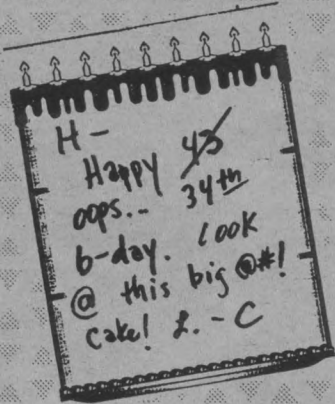 H -
Happy 43
oops... 34th
b-day. look
@ this big @#!
cake! L. - C